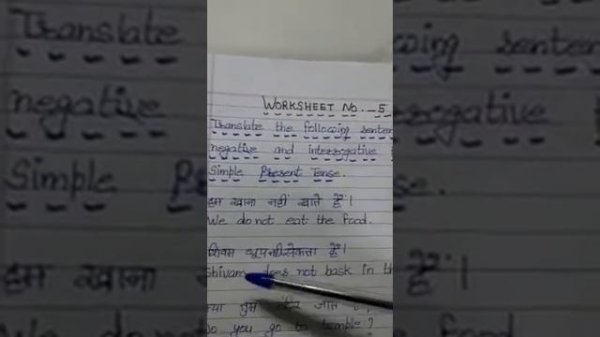 WORKSHEET No. - 5
Translate the following senten
negative and interrogative
Simple Present Tense.
हम खाना नहीं खाते हैं।
We do not eat the food.
शिवम धूप नहीं सेकता हैं।
Shivam does not bask in th
तुम जाते
Do you go to temple?